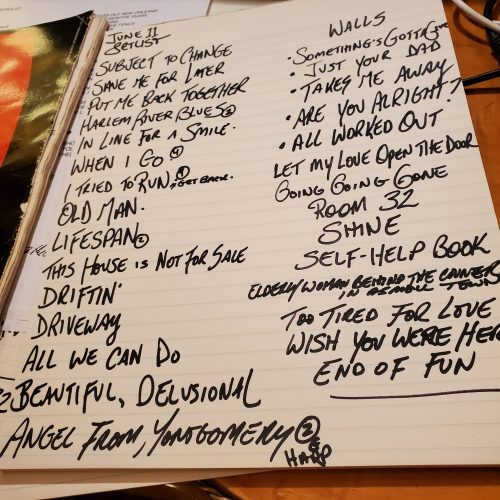 JUNE 11
SETLIST
SUBJECT TO CHANGE
SAVE ME FOR LATER
PUT ME BACK TOGETHER
HARLEM RIVER BLUES
IN LINE FOR A SMILE.
WHEN I GO 4
I TRIED TO RUN, GET BACK.
OLD MAN.
LIFESPAN
THIS HOUSE IS NOT FOR SALE
DRIFTIN'
DRIVEWAY
ALL WE CAN DO
BEAUTIFUL, DELUSIONAL
ANGEL FROM, MONTGOMERY 2
HARP
WALLS
• SOMETHING'S GOTTA GIVE
• JUST YOUR DAD
• TAKES ME AWAY
• ARE YOU ALRIGHT?
• ALL WORKED OUT
LET MY LOVE OPEN THE DOOR
GOING GOING GONE
ROOM 32
SHINE
SELF-HELP BOOK
ELDERLY WOMAN BEHIND THE COUNTER
IN A SMALL TOWN
TOO TIRED FOR LOVE
WISH YOU WERE HERE
END OF FUN